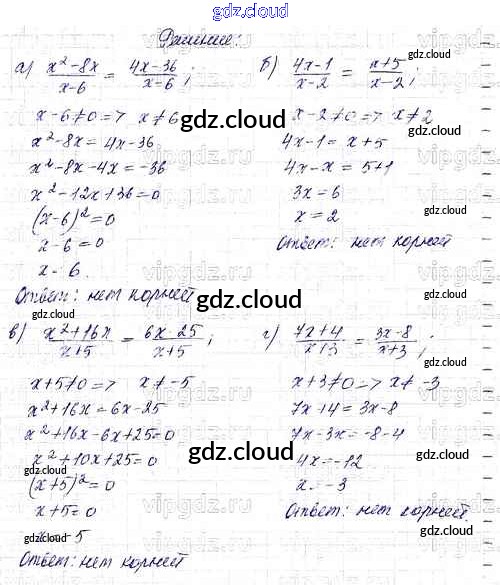 gdz.cloud
Решение:
а) (x² - 8x)/(x - 6) = (4x - 36)/(x - 6);
x - 6 ≠ 0 => x ≠ 6
x² - 8x = 4x - 36
x² - 8x - 4x = -36
x² - 12x + 36 = 0
(x - 6)² = 0
x - 6 = 0
x = 6.
Ответ: нет корней
б) (4x - 1)/(x - 2) = (x + 5)/(x - 2);
x - 2 ≠ 0 => x ≠ 2
4x - 1 = x + 5
4x - x = 5 + 1
3x = 6
x = 2
Ответ: нет корней
в) (x² + 16x)/(x + 5) = (6x - 25)/(x + 5);
x + 5 ≠ 0 => x ≠ -5
x² + 16x = 6x - 25
x² + 16x - 6x + 25 = 0
x² + 10x + 25 = 0
(x + 5)² = 0
x + 5 = 0
x = -5
Ответ: нет корней
г) (7x + 4)/(x + 3) = (3x - 8)/(x + 3);
x + 3 ≠ 0 => x ≠ -3
7x + 4 = 3x - 8
7x - 3x = -8 - 4
4x = -12
x = -3
Ответ: нет корней.
gdz.cloud
gdz.cloud
gdz.cloud
gdz.cloud
gdz.cloud
gdz.cloud
gdz.cloud
gdz.cloud
gdz.cloud
gdz.cloud
gdz.cloud